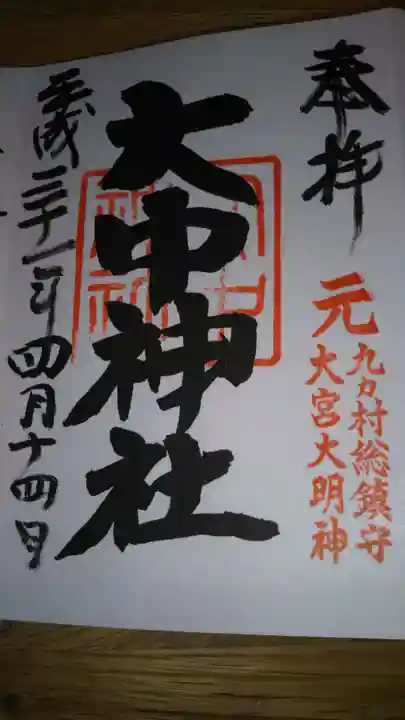 奉拝
元
九ヵ村総鎮守
大宮大明神
大中神社
平成三十一年四月十四日